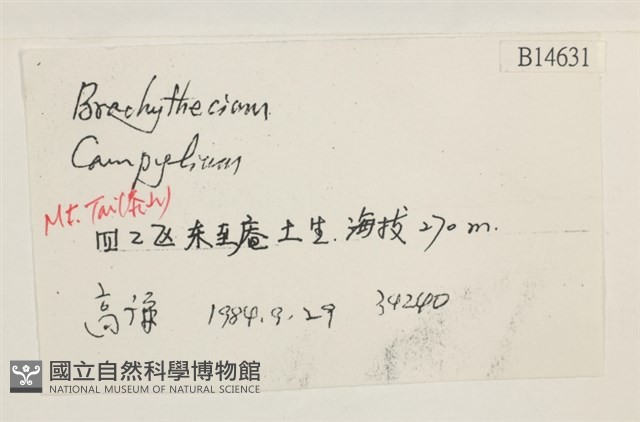 B14631
Brachythecium
Campylium
Mt. Tai(泰山)
土生. 海拔 270 m.
高谦 1984.9.29 34240
國立自然科學博物館
NATIONAL MUSEUM OF NATURAL SCIENCE